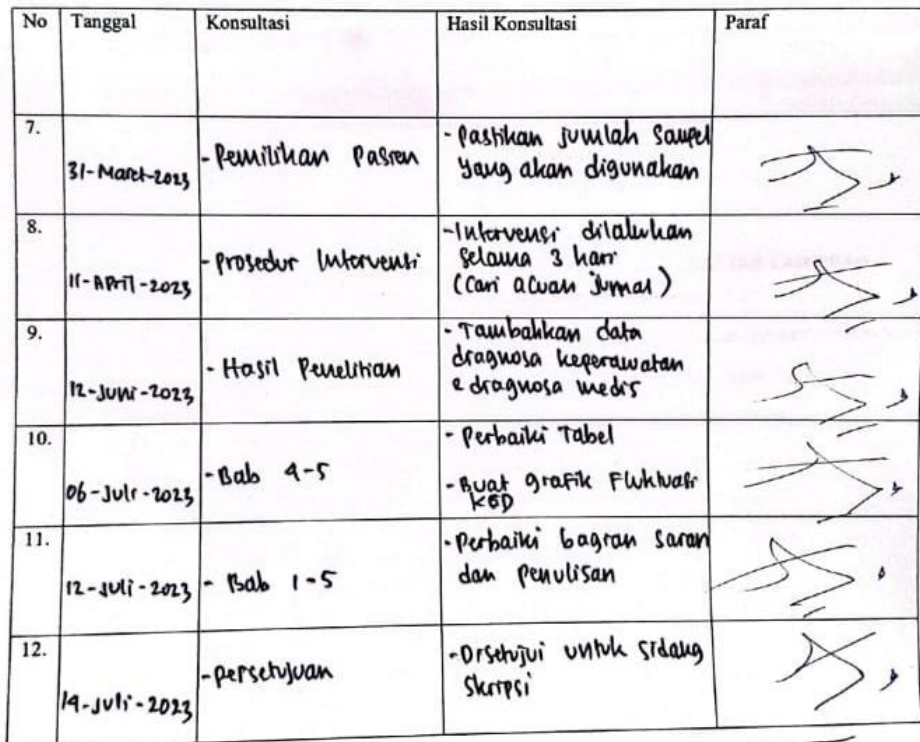 No Tanggal Konsultasi Hasil Konsultasi Paraf
7.
31-Maret-2023
- Pemilihan Pasien
- Pastikan jumlah Sampel
yang akan digunakan
8.
11-April-2023
- Prosedur Intervensi
- Intervensi dilakukan
selama 3 hari
(Cari acuan jurnal)
9.
12-Juni-2023
- Hasil Penelitian
- Tambahkan data
diagnosa keperawatan
e diagnosa medis
10.
06-Juli-2023
- Bab 4-5
- Perbaiki Tabel
- Buat grafik Fluktuasi
KGD
11.
12-Juli-2023
- Bab 1-5
- Perbaiki bagian Saran
dan Penulisan
12.
14-Juli-2023
- Persetujuan
- Disetujui untuk sidang
Skripsi